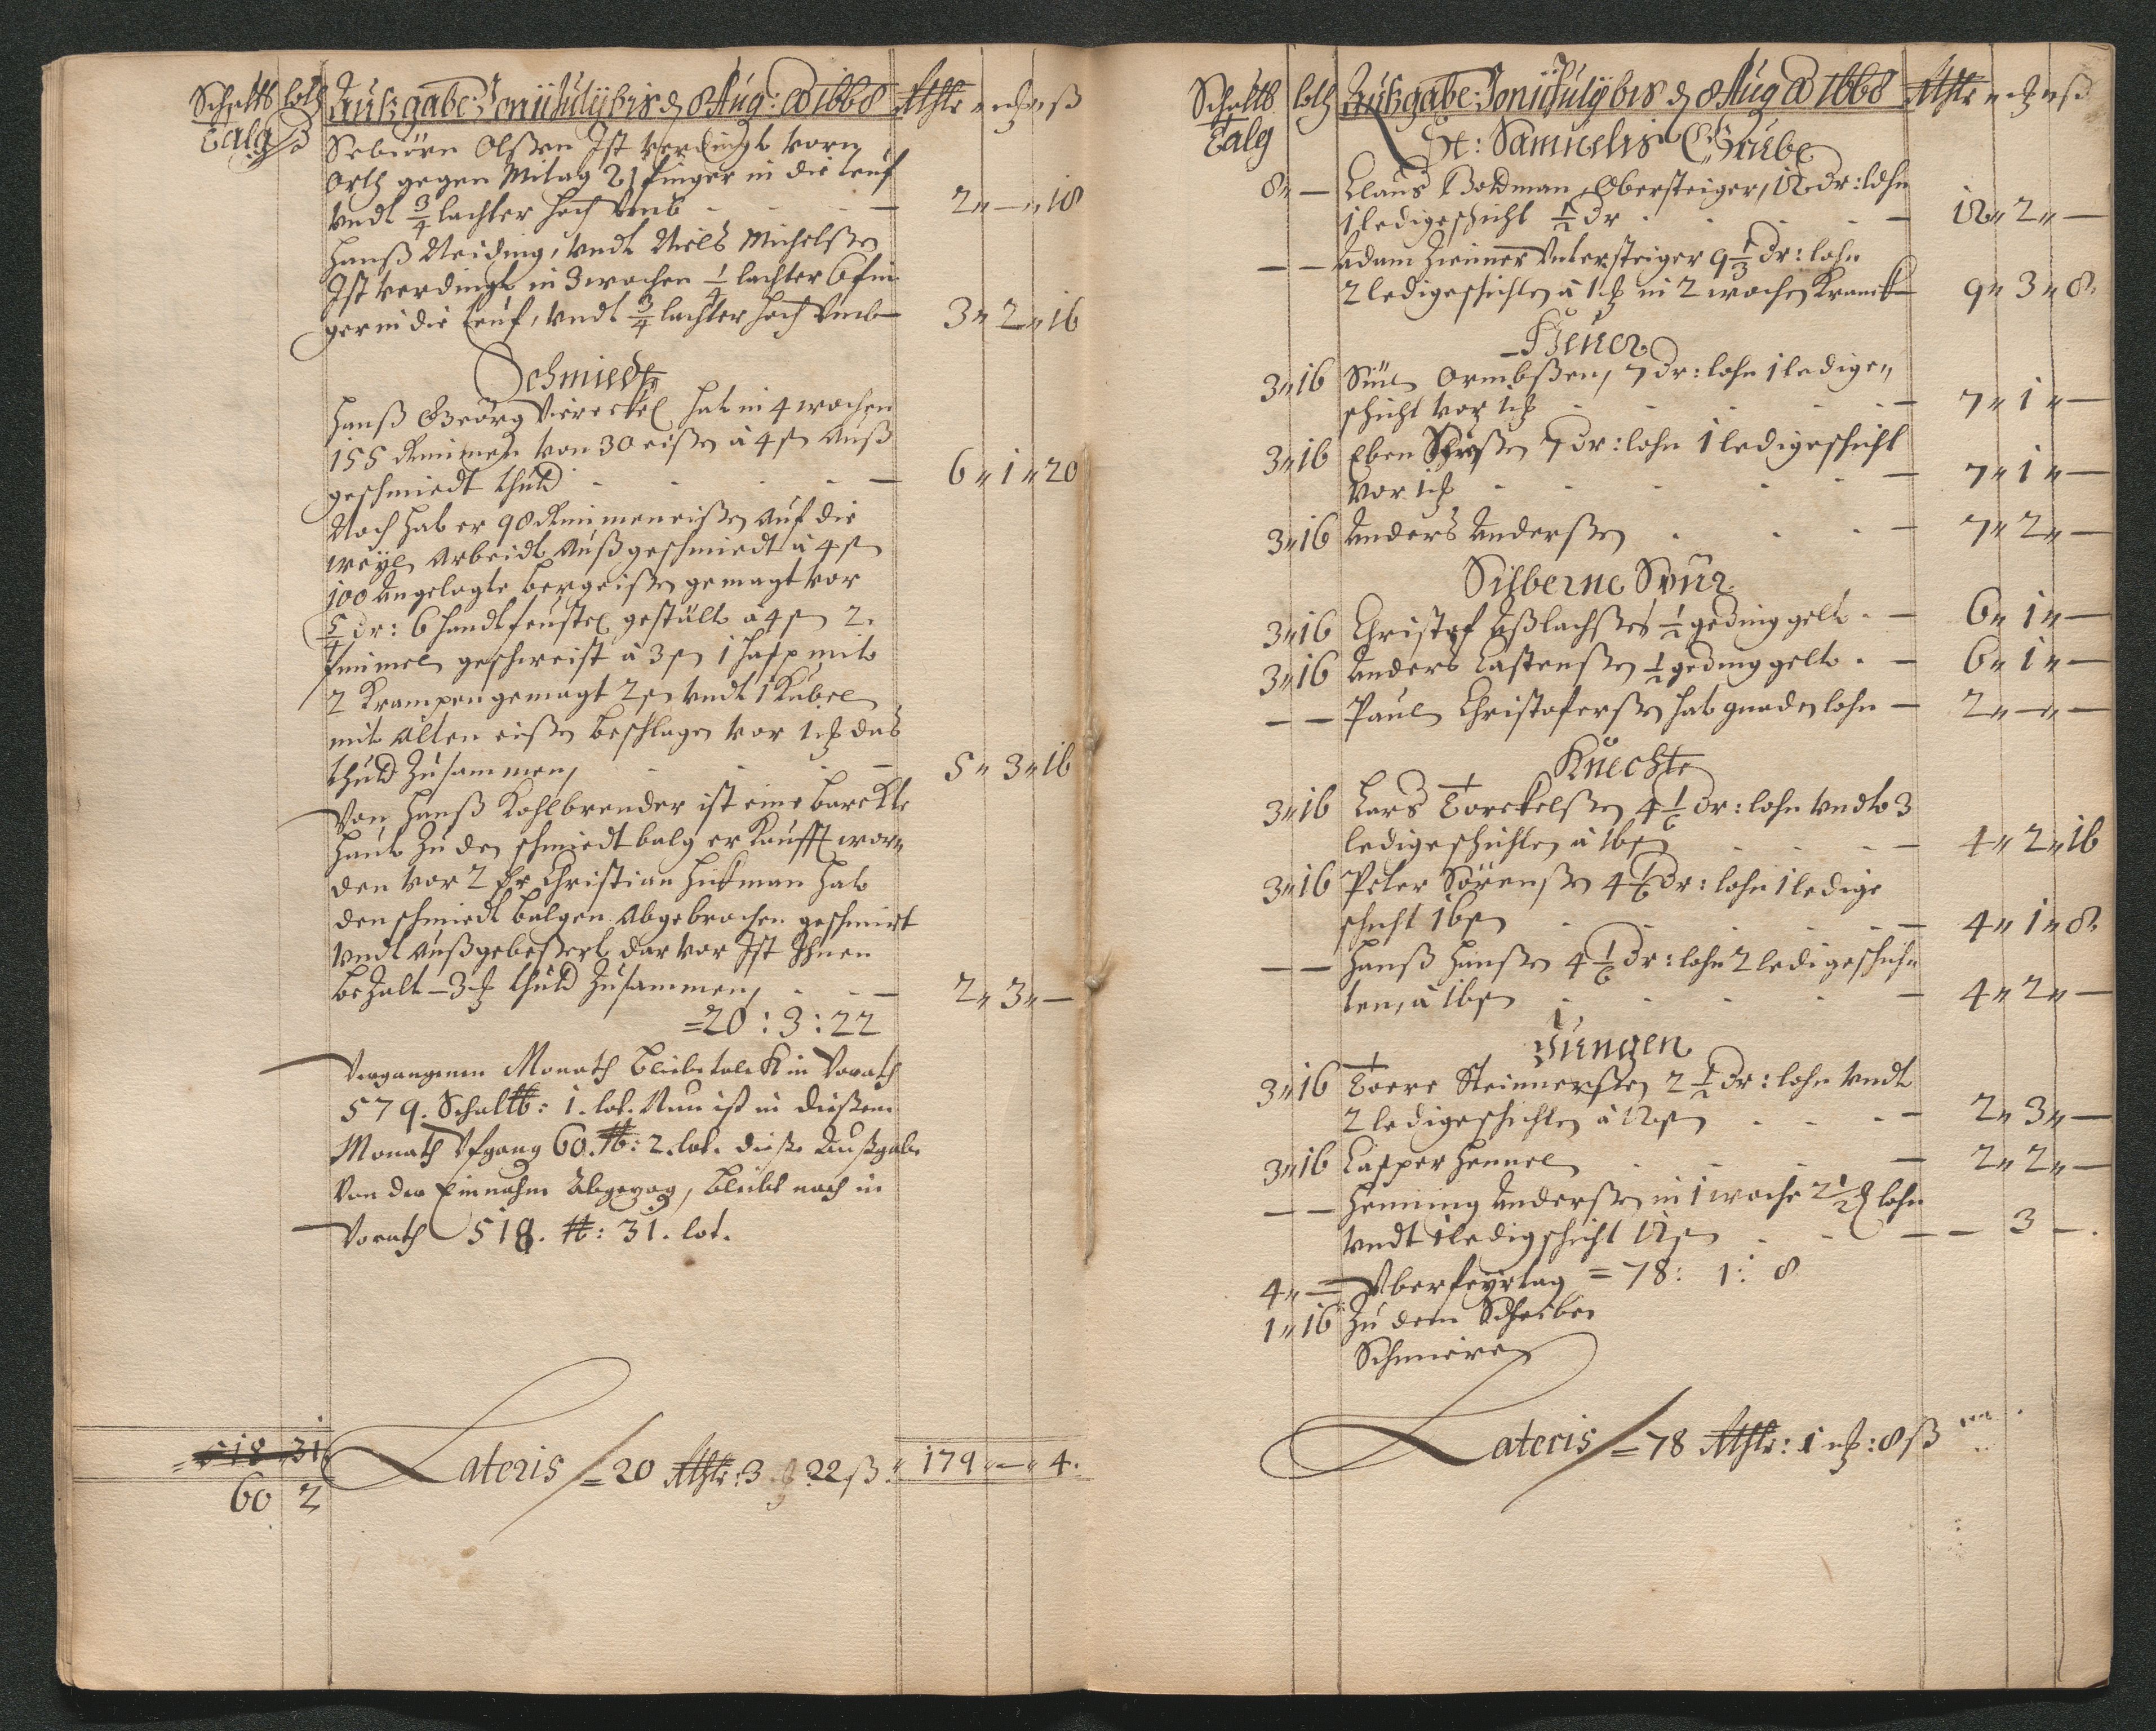 Schaltt loth Außgabe: 1 Juny July bis d 8 Aug: Ao 1668 Rthlr ort ß
Talg
Sebiörn Olßen Ist verdingt vorn
orth gegen Mitag 21 finger in die teuf
undt 3/4 lachter hoch umb - - - 2 " — " 18
Hanß Neiding, undt Niels Michelßen
Ist verdingt in 3 wochen 1/4 lachter 6 fin
ger in die teuf, undt 3/4 lachter hoch umb — 3 " 2 " 16
Schmiede
Hanß Georg Viereckel hat in 4 wochen
155 Rimmen von 30 eißen à 4 ß auß
geschmiedt thutd - - - - — 6 " 1 " 20
Noch hat er 98 Rimmeneißen auf die
weyl arbeidt außgeschmiedt à 4 ß
100 angelegte bergeißen gemagt vor
5/4 dr: 6 handtfeustel gestält à 4 ß 2.
fimmel geschweist à 3 ß 1 hasp mit
2 Krampen gemagt 2 ß undt 1 Kübel
mit alten eißen beschlagen vor 1 ort das
thutd zusammen, - - - — 5 " 3 " 16
Von Hanß Kohlbrender ist eine barckte
haut zu den schmiedt balg erkaufft wor"
den vor 2 dr Christian Hickman hat
den schmiedt balgen abgebrochen geschmirt
undt außgebeßert dar vor Ist Ihnen
bezalt — 3 ort thutd zusammen, - - — 2 " 3 " —
= 20 : 3 : 22
Vergangenen Monath bleibt talck in Vorath
579. Schaltt: 1. lot. Nun ist in dießem
Monath Ufgang 60. tt: 2. lot. dieße Außgabe
Von der Einnahme abgezog, bleibt noch in
Vorath 518. tt: 31. lot.
= 518 31
60 2
Lateris = 20 Rthlr: 3 ort 22 ß: 179 " — " 4.
Schaltt loth Außgabe: 1 Juny July bis d 8 Aug Ao 1668 Rthlr ort ß
Talg
St: Samuelis Grube
8 " — Claus Boldman Obersteiger, 12 dr: lohn
1 ledigeschicht 1/2 dr - - - — 12 " 2 " —
— — Adam Zimmer Untersteiger 9 1/3 dr: lohn
2 ledigeschichten à 1 ort in 2 wochen Kranck — 9 " 3 " 8
Heuer
3 " 16 Siul Ormbßen, 7 dr: lohn 1 ledige"
schicht vor 1 ort - - - - — 7 " 1 " —
3 " 16 Eben 7 dr: lohn 1 ledigeschicht
vor 1 ort - - - - — 7 " 1 " —
3 " 16 Anders Anderßen - - - — 7 " 2 " —
Silberne Spur
3 " 16 Christof Aßlachßen 1/2 geding gelt - — 6 " 1 " —
3 " 16 Anders Castenßen 1/2 geding gelt - — 6 " 1 " —
— — Paul Christoferßen hat gnaden lohn — 2 " — " —
Knechte
3 " 16 Lars Torckelßen 4 1/6 dr: lohn undt 3
ledigeschichten à 16 ß - - - — 4 " 2 " 16
3 " 16 Peter Sörenßen 4 1/6 dr: lohn 1 ledige
schicht 16 ß - - - — 4 " 1 " 8
— — Hanß Hanßen 4 1/6 dr: lohn 2 ledigeschich"
ten, à 16 ß - - - - — 4 " 2 " —
Jungen
3 " 16 Toere Steinnerßen 2 1/2 dr: lohn undt
2 ledigeschichten à 12 ß - - - — 2 " 3 " —
3 " 16 Casper Hennel - - - — 2 " 2 " —
— — Henning Anderßen in 1 woche 2 1/2 ort lohn
undt 1 ledigschicht 12 ß - - — — 3 —.
4 " — Uberfeyrtag = 78: 1: 8
1 " 16 Zu dem Scheiben
Schmieren
Lateris = 78 Rthlr: 1 ort: 8 ß